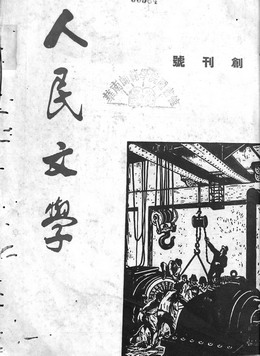 創刊號
人民文學